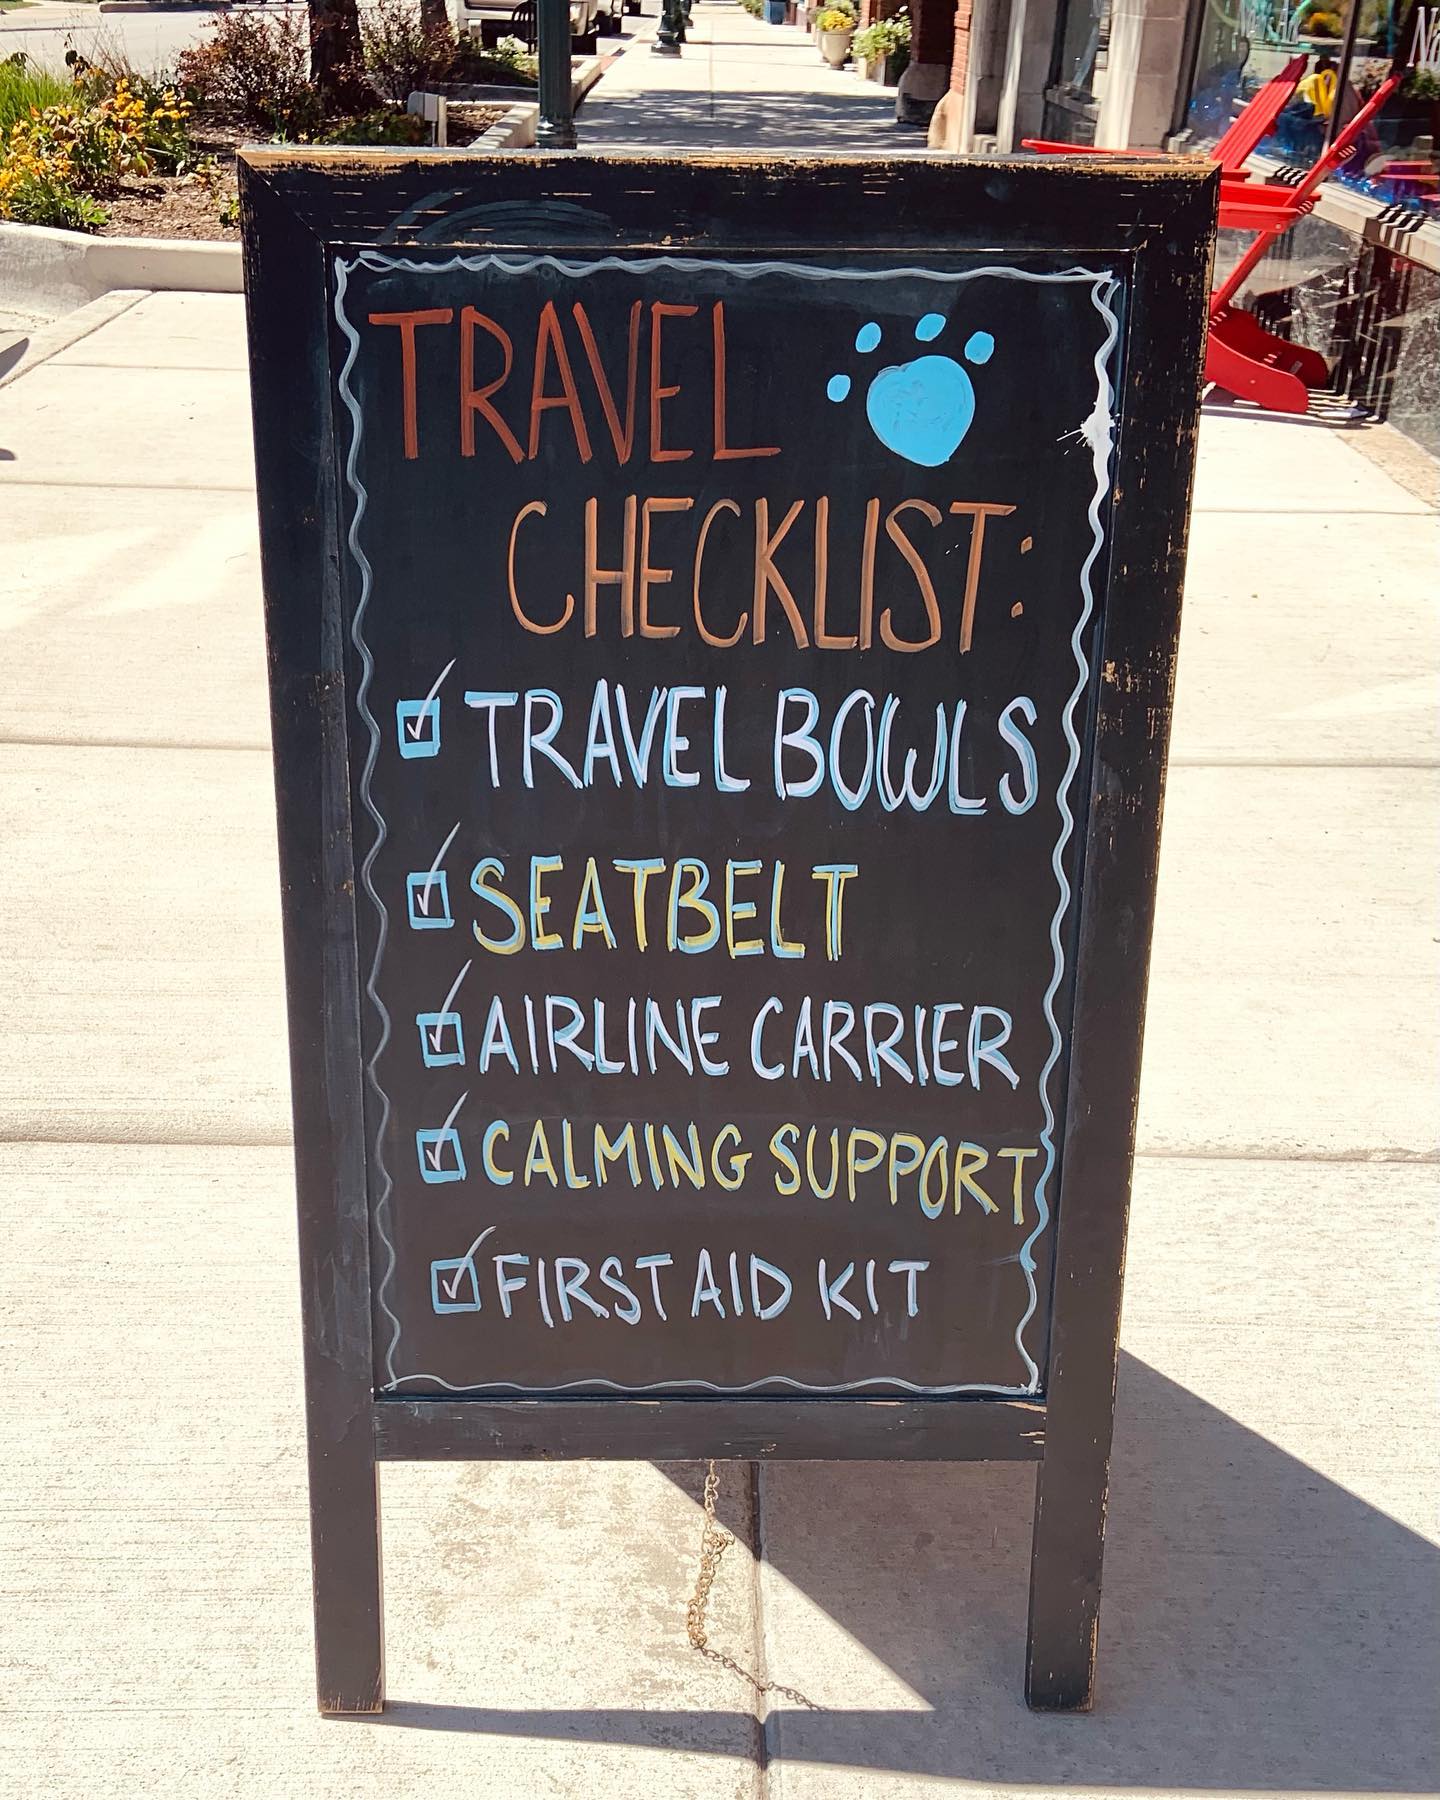 TRAVEL
CHECKLIST:
TRAVEL BOWLS
SEATBELT
AIRLINE CARRIER
CALMING SUPPORT
FIRST AID KIT